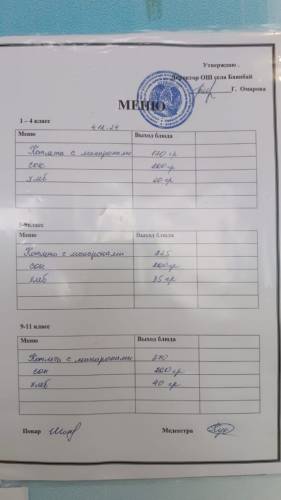 Утверждаю .
Директор ОШ села Баянбай
Г. Омарова
МЕНЮ
1 – 4 класс
4.12.24
Меню Выход блюда
Котлета с макаронами 170 гр
сок 200 гр
хлеб 20 гр
5-8 класс
Меню Выход блюда
Котлета с макаронами 225
сок 200 гр
хлеб 35 гр
9-11 класс
Меню Выход блюда
Котлета с макаронами 270
сок 200 гр
хлеб 40 гр
Повар Медсестра